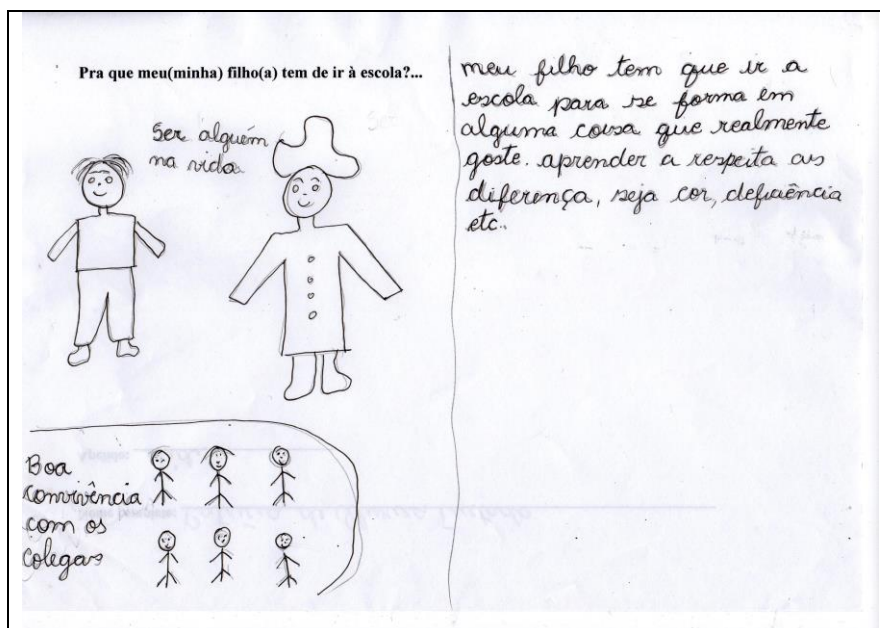 Pra que meu(minha) filho(a) tem de ir à escola?...
Ser alguém
na vida
Boa
convivência
com os
colegas
meu filho tem que ir a
escola para se forma em
alguma coisa que realmente
goste. aprender a respeita as
diferença, seja cor, deficiência
etc..